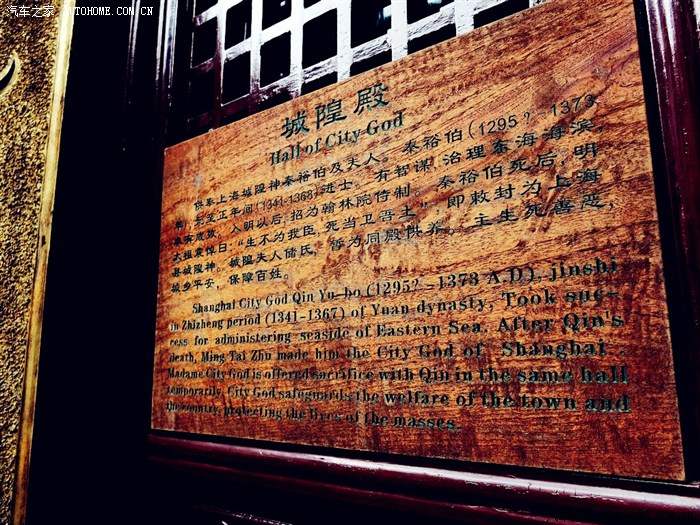 汽车之家 AUTOHOME.COM.CN
城隍殿
Hall of City God
供奉上海城隍神秦裕伯及夫人。秦裕伯(1295?-1373
年)元至正年间(1341-1368)进士。有智谋,治理东海海滨,
入明以后,招为翰林院侍制。秦裕伯死后,明
太祖哀悼曰:“生不为我臣,死当卫吾土”,即敕封为上海
县城隍神。城隍夫人储氏,暂为同殿供养。主生死善恶,
城乡平安,保障百姓。
Shanghai City God Qin Yu-bo (1295?-1373 A.D), jinshi
in Zhizheng period (1341-1367) of Yuan dynasty, Took suc-
cess for administering seaside of Eastern Sea. After Qin's
death, Ming Tai Zhu made him the City God of Shanghai .
Madame City God is offered sacrifice with Qin in the same hall
temporarily. City God safeguards the welfare of the town and
the country, protecting the lives of the masses.